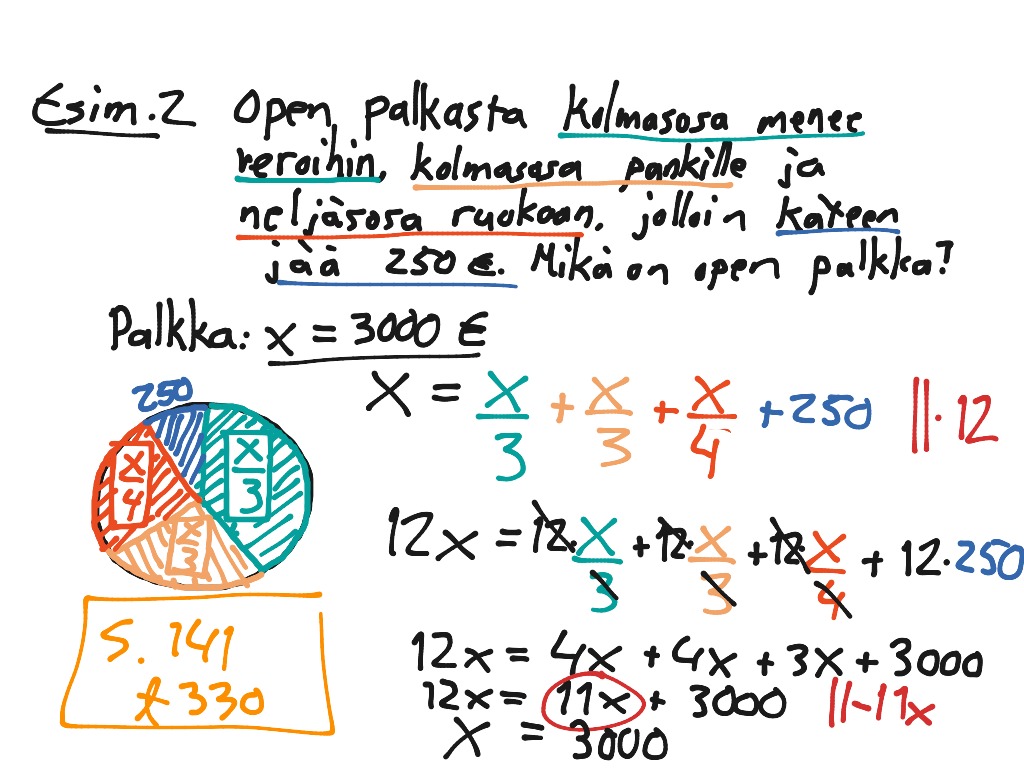 Esim.2 Open palkasta kolmasosa menee
veroihin, kolmasosa pankille ja
neljäsosa ruokaan, jolloin käteen
jää 250 €. Mikä on open palkka?
Palkka: x = 3000 €
x = x/3 + x/3 + x/4 + 250 ||· 12
250
x/3
x/4
x/3
12x = 12·x/3 + 12·x/3 + 12·x/4 + 12·250
12x = 4x + 4x + 3x + 3000
12x = 11x + 3000 ||-11x
x = 3000
S. 141
t 330